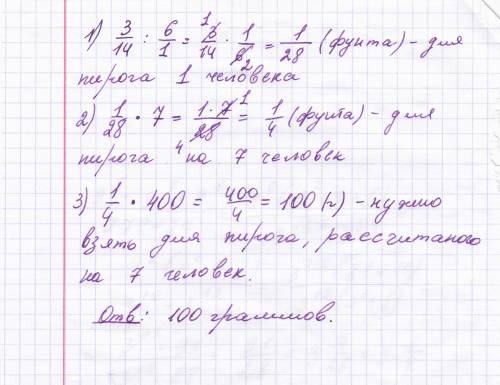 1) 3/14 : 6/1 = 3/14 · 1/6 = 1/28 (фунта) – для
пирога 1 человека
2) 1/28 · 7 = 1·7/28 = 1/4 (фунта) – для
пирога на 7 человек
3) 1/4 · 400 = 400/4 = 100 (г) – нужно
взять для пирога, рассчитаного
на 7 человек.
Отв: 100 граммов.